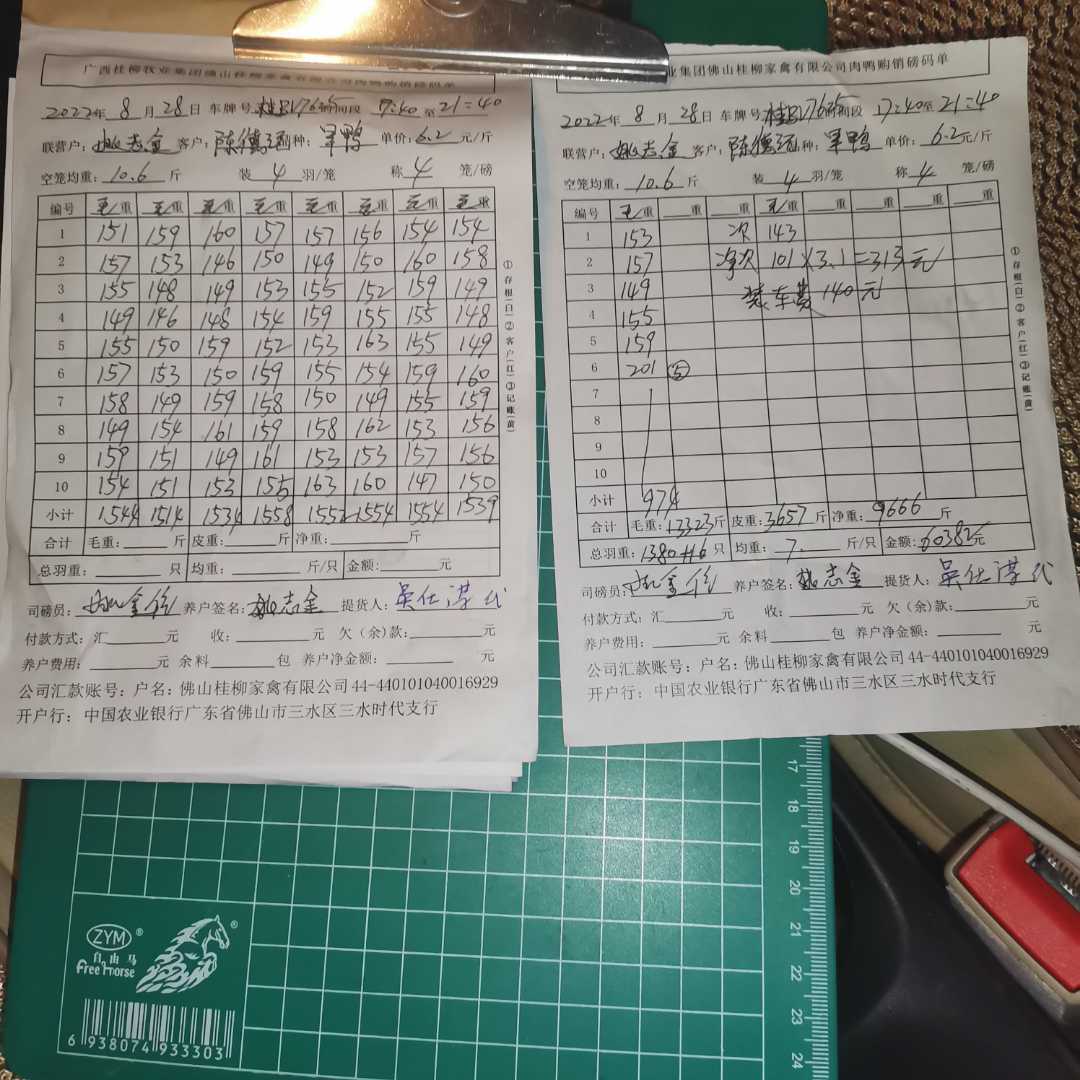 广西桂柳牧业集团佛山桂柳家禽有限公司肉鸭购销磅码单
2022年 8 月 28 日 车牌号 时间段 17:40 至 21:40
联营户: 姚志金 客户: 品种: 单价: 6.2 元/斤
空笼均重: 10.6 斤 装 4 羽/笼 称 4 笼/磅
编号 毛重 毛重 毛重 毛重 毛重 毛重 毛重 毛重
1 151 159 160 157 157 156 154 154
2 157 153 146 150 149 150 160 158
3 155 148 149 153 155 152 159 149
4 149 146 148 154 159 155 155 148
5 155 150 159 152 153 163 155 149
6 157 153 150 159 155 154 159 160
7 158 149 159 158 150 149 155 159
8 149 154 161 159 158 162 153 156
9 159 151 149 161 153 153 157 156
10 154 151 153 155 163 160 147 150
小计 1544 1514 1534 1558 1552 1554 1554 1539
合计 毛重: 斤 皮重: 斤 净重: 斤
总羽重: 只 均重: 斤/只 金额: 元
司磅员: 养户签名: 姚志金 提货人: 吴仕谋代
付款方式: 汇 元 收: 元 欠(余)款: 元
养户费用: 元 余料 包 养户净金额: 元
公司汇款账号: 户名: 佛山桂柳家禽有限公司 44-440101040016929
开户行: 中国农业银行广东省佛山市三水区三水时代支行
①存根(白)②客户(红)③记账(黄)
业集团佛山桂柳家禽有限公司肉鸭购销磅码单
2022年 8 月 28 日 车牌号 时间段 17:40 至 21:40
联营户: 姚志金 客户: 品种: 单价: 6.2 元/斤
空笼均重: 10.6 斤 装 4 羽/笼 称 4 笼/磅
编号 毛重 重 重 毛重 重 重 重 重
1 153 次 143
2 157 净次 101×3.1=313元
3 149 装车费 140元
4 155
5 159
6 201 ⑤
7
8
9
10
小计 974
合计 毛重: 13323 斤 皮重: 3657 斤 净重: 9666 斤
总羽重: 1380+16 只 均重: 7. 斤/只 金额: 60382元
司磅员: 养户签名: 姚志金 提货人: 吴仕谋代
付款方式: 汇 元 收: 元 欠(余)款: 元
养户费用: 元 余料 包 养户净金额: 元
公司汇款账号: 户名: 佛山桂柳家禽有限公司 44-440101040016929
开户行: 中国农业银行广东省佛山市三水区三水时代支行
①存根(白)②客户(红)③记账(黄)
17
18
19
20
21
22
23
24
ZYM ®
自由马
Free horse
®
6 938074 933303